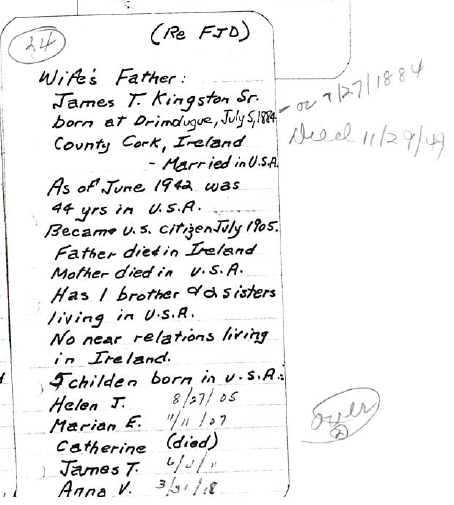 24
(Re FJD)
Wife's Father:
James T. Kingston Sr.
born at Drimdugue, July 5, 1884 - or 7/27/1884
County Cork, Ireland Died 11/29/49
- Married in U.S.A.
As of June 1942 was
44 yrs in U.S.A.
Became U.S. citizen July 1905.
Father died in Ireland
Mother died in U.S.A.
Has 1 brother & 2 sisters
living in U.S.A.
No near relations living
in Ireland.
5 childen born in U.S.A.:
Helen J. 8/27/05
Marian E. 11/11/07
Catherine (died)
James T.
Anna V. 3/31/18
over
2